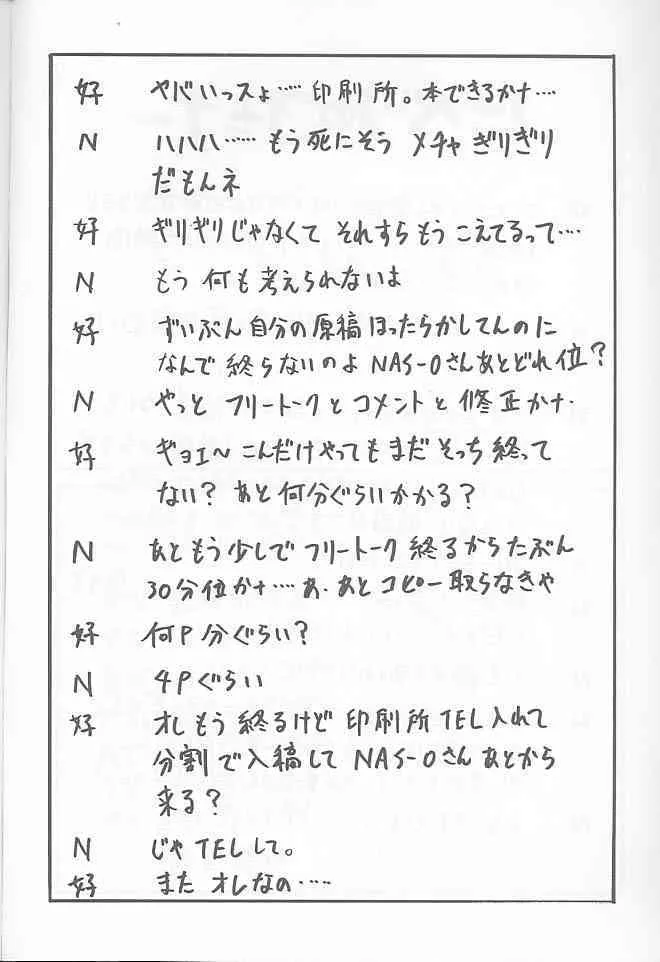 好 ヤバいっスよ……印刷所。本できるかナ…
N ハハハ……もう死にそう メチャぎりぎり
だもんネ
好 ギリギリじゃなくて それすらもう こえてるって…
N もう 何も考えられないよ
好 ずいぶん自分の原稿ほったらかしてんのに
なんで終らないのよ NAS-Oさんあとどれ位?
N やっと フリートークとコメントと修正かナ.
好 ギョエ~こんだけやってもまだそっち終って
ない? あと何分ぐらいかかる?
N あともう少しでフリートーク終るからたぶん
30分位かナ…. あ. あとコピー取らなきゃ
好 何P分ぐらい?
N 4Pぐらい
好 オレもう終るけど 印刷所TEL入れて
分割で入稿して NAS-Oさんあとから
来る?
N じゃTELして。
好 また オレなの….